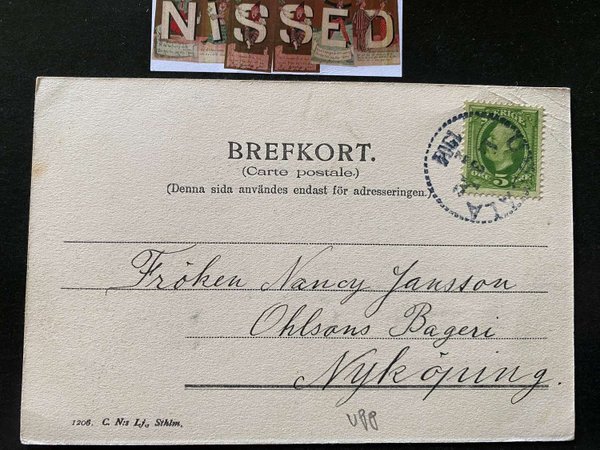 NISSED
BREFKORT.
(Carte postale.)
(Denna sida användes endast för adresseringen.)
SVERIGE
5
Fröken Nancy Jansson
Ohlsons Bageri
Nyköping.
1206. C. N:s Lj., Sthlm.
UPP